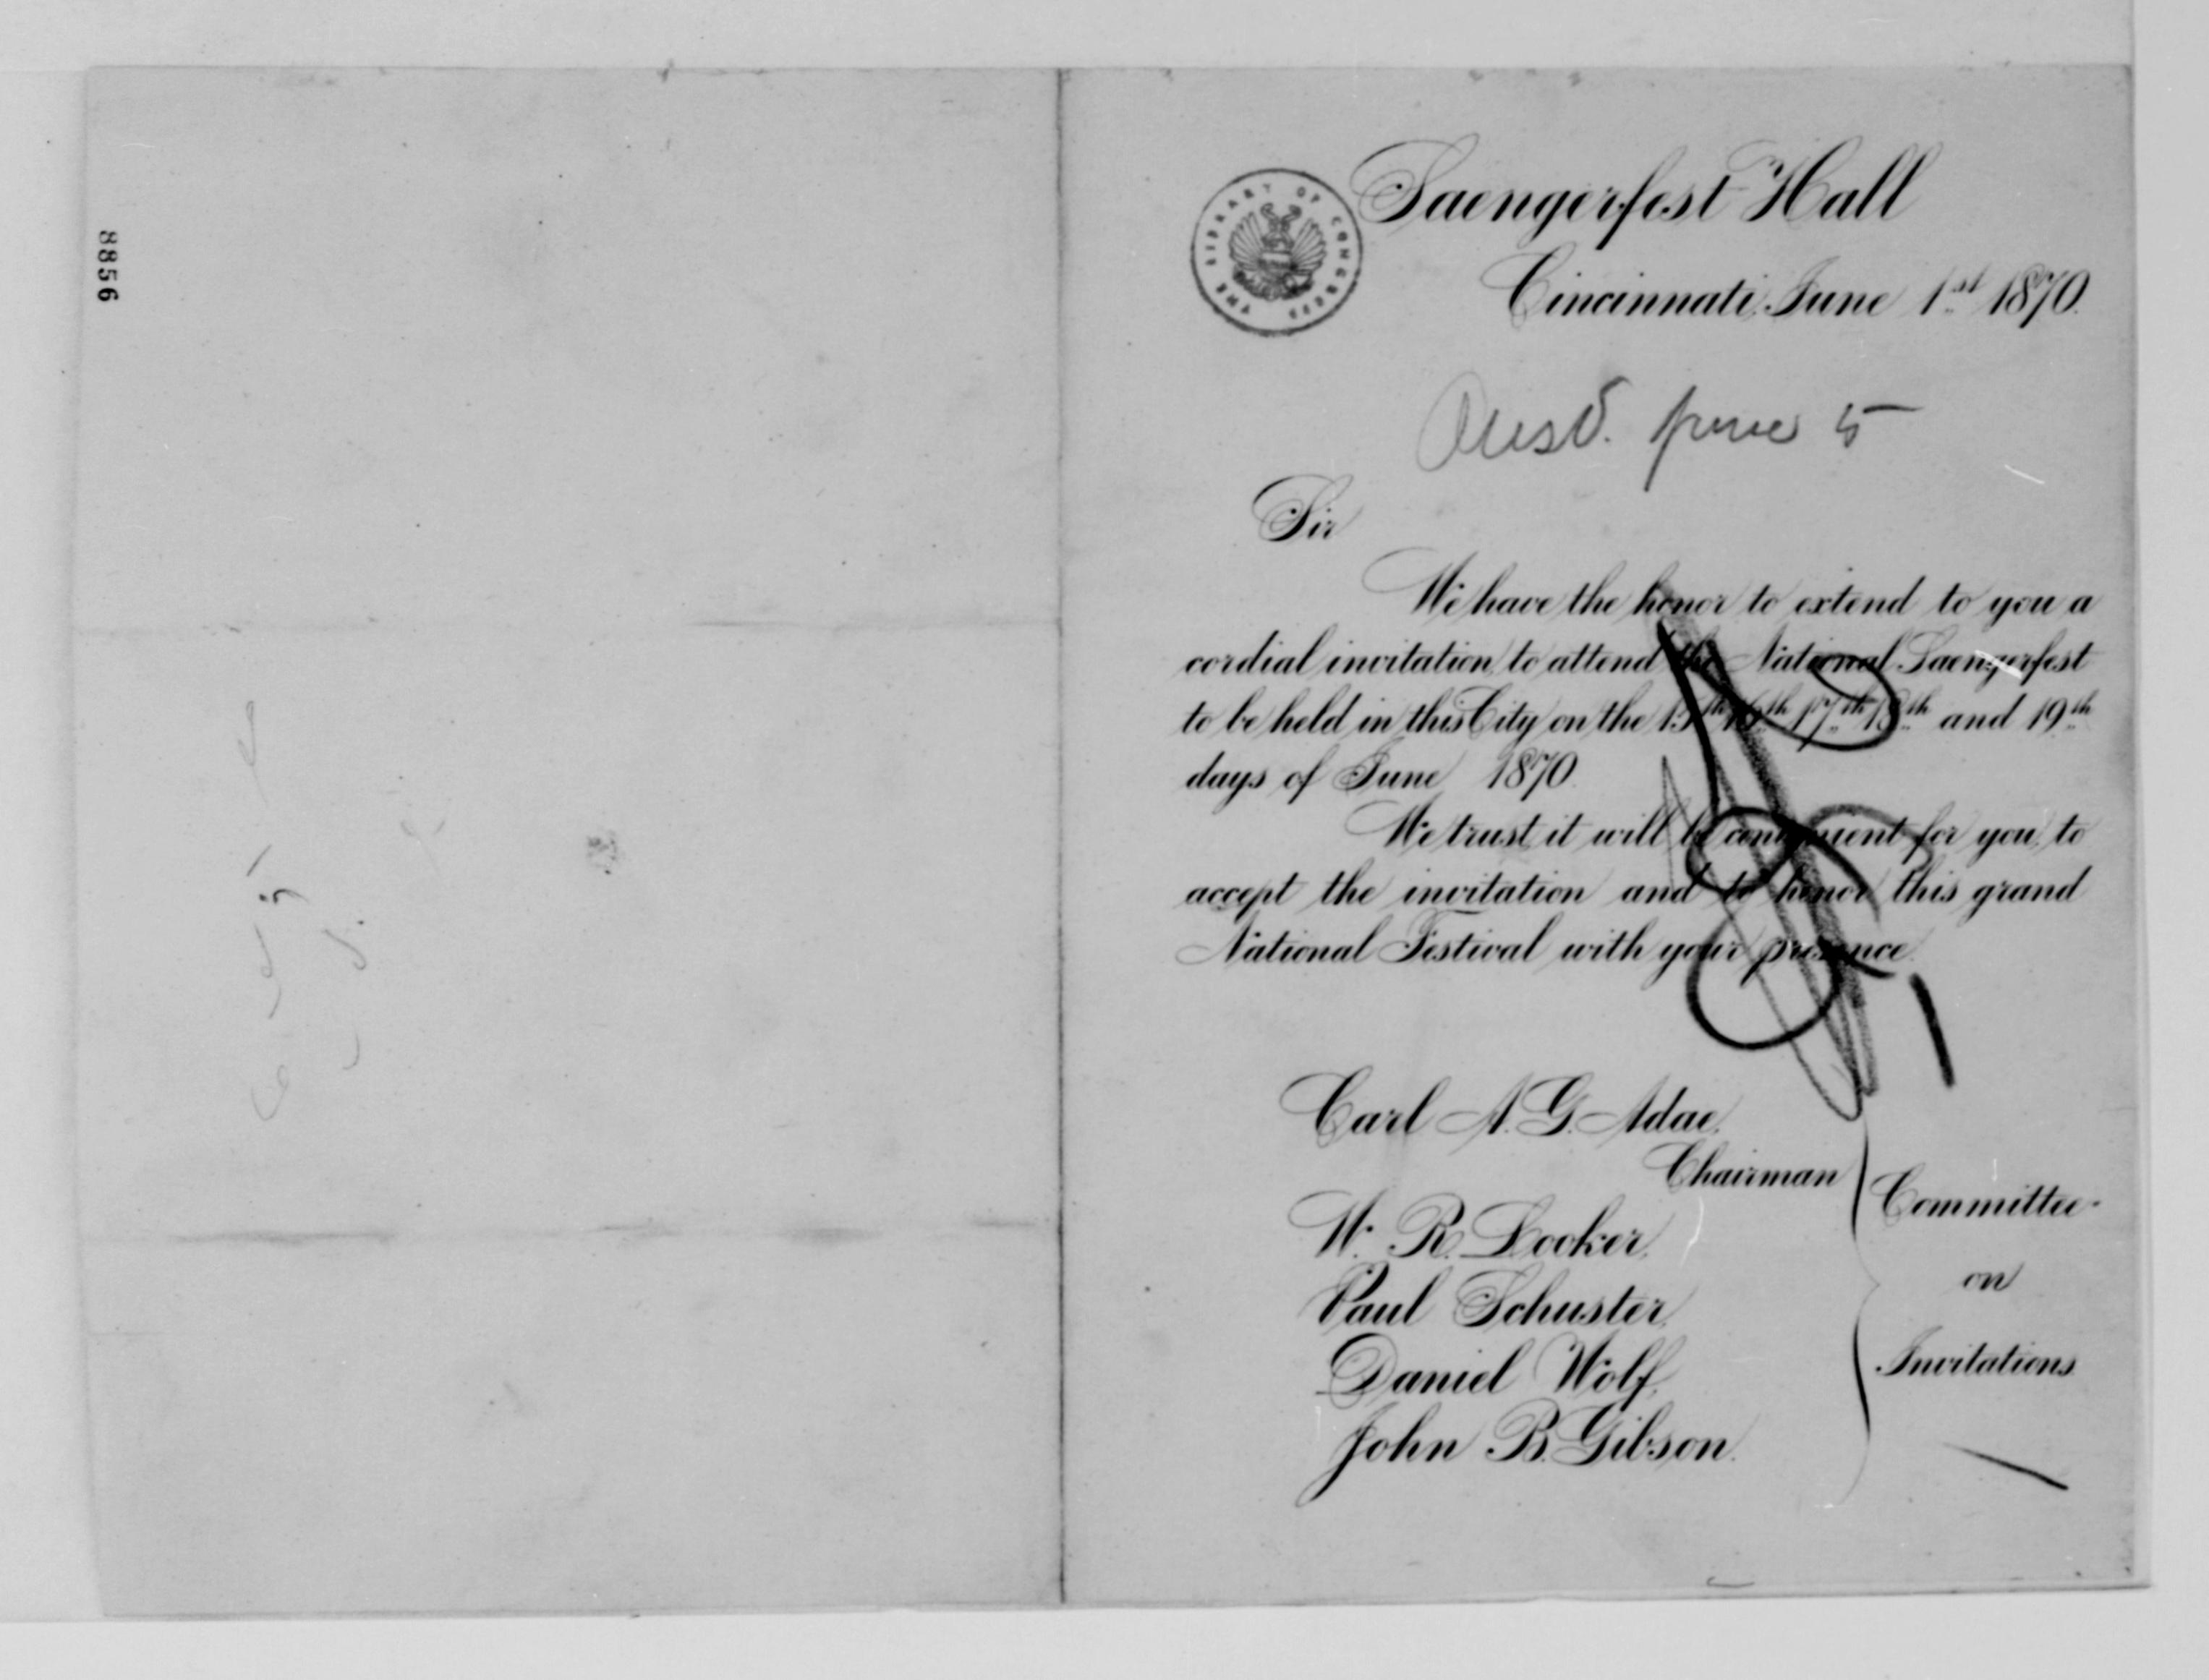 8856
THE LIBRARY OF CONGRESS
Saengerfest Hall
Cincinnati, June 1st 1870.
Ansd. June 5
Sir
We have the honor to extend to you a
cordial invitation, to attend the National Saengerfest
to be held in this City on the 15th 16th 17th 18th and 19th
days of June 1870.
We trust it will be convenient for you, to
accept the invitation and to honor this grand
National Festival with your presence.
Carl A. G. Adae,
Chairman
W. R. Looker,
Paul Schuster,
Daniel Wolf,
John B. Gibson.
Committee
on
Invitations